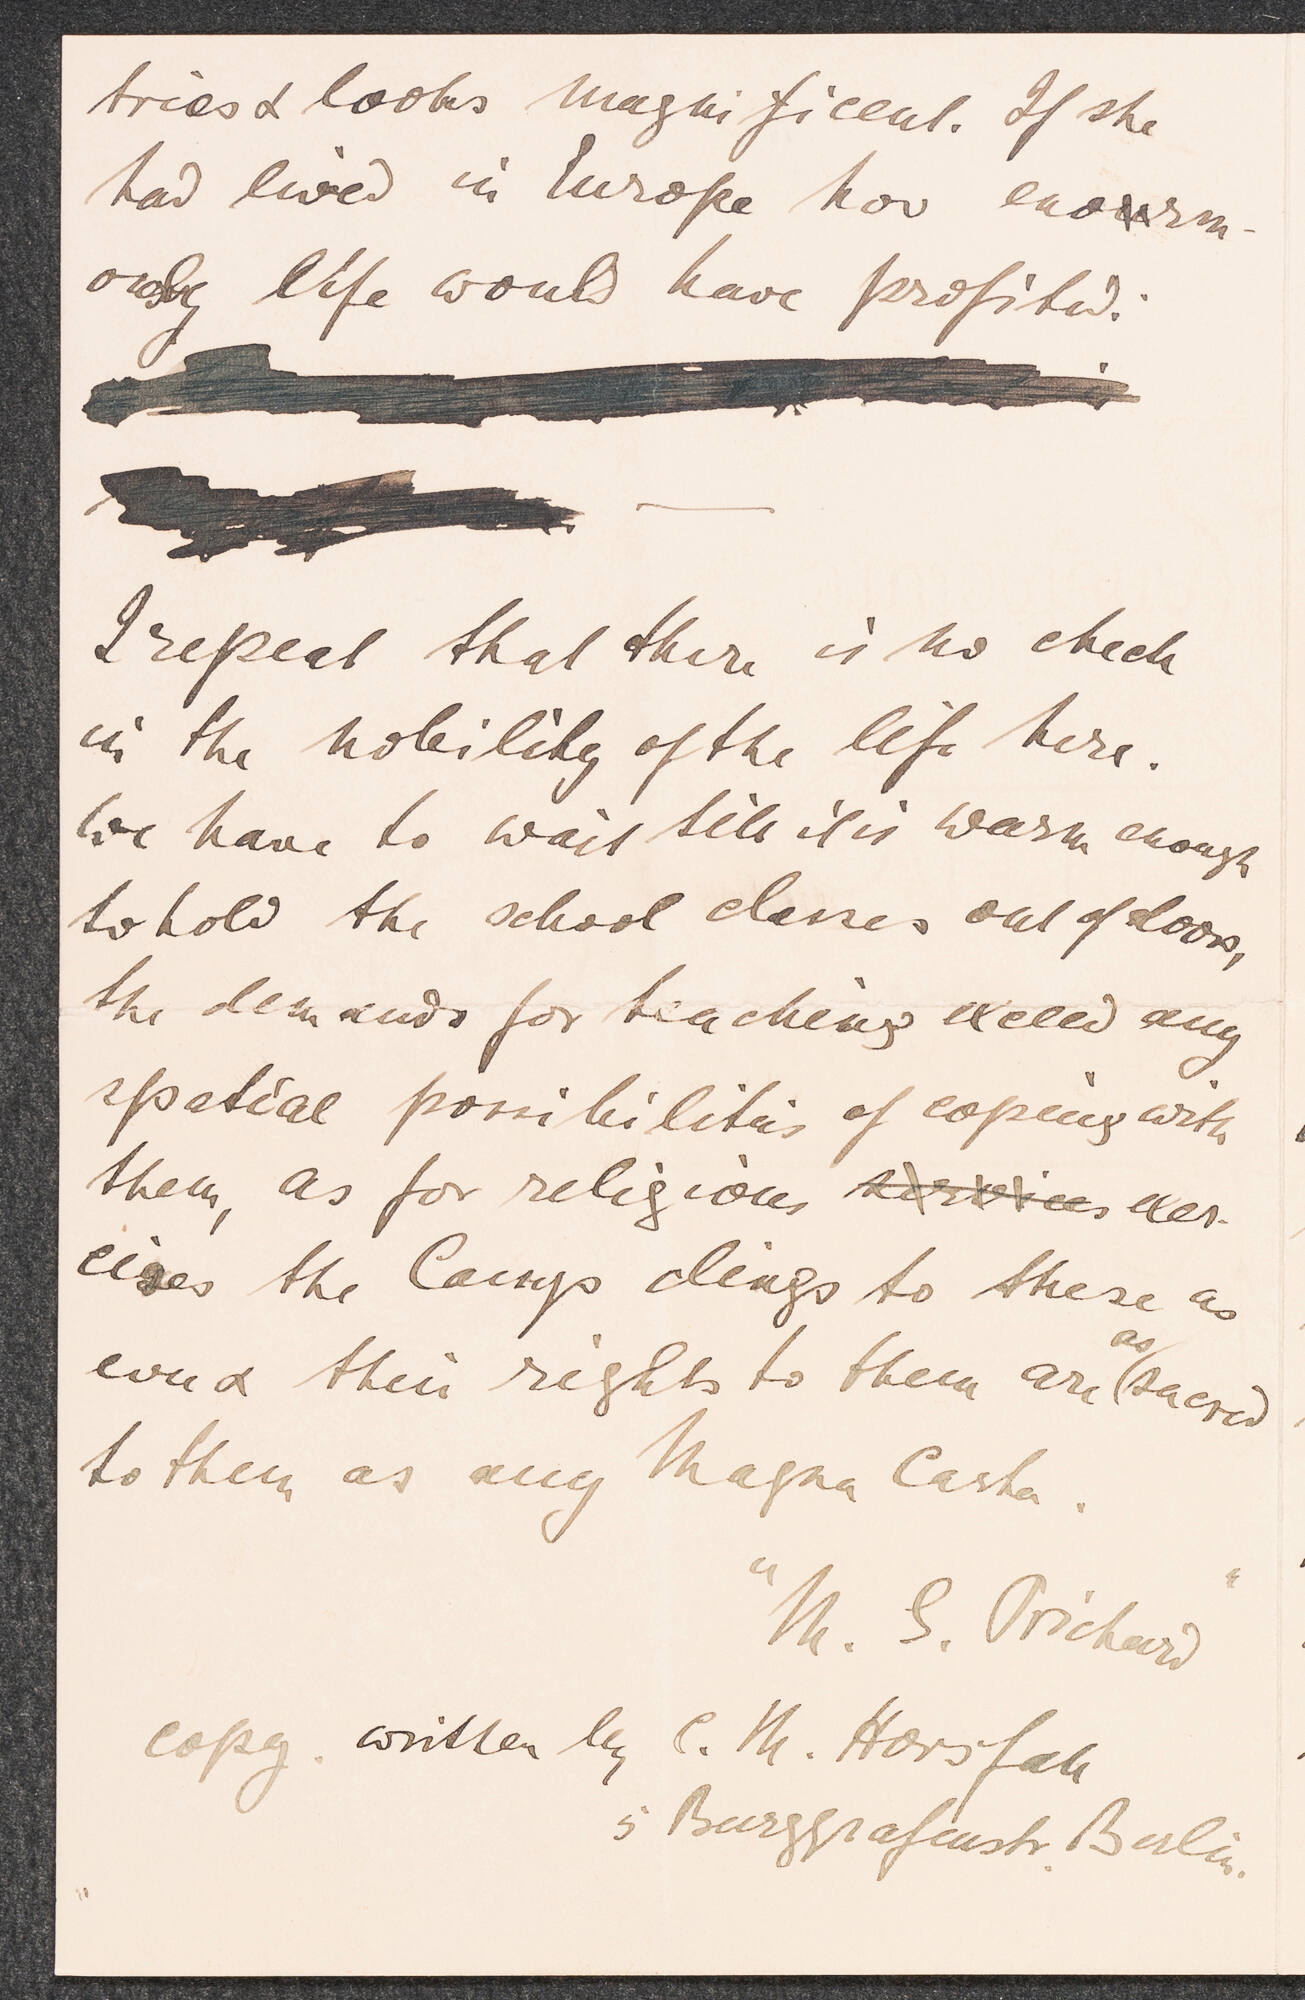 tries & looks magnificent. If she
had lived in Europe how enorm-
ously life would have profited.
I repeat that there is no check
in the nobility of the life here.
We have to wait till it is warm enough
to hold the school classes out of doors,
the demands for teaching exceed any
spatial possibilities of coping with
them, as for religious services exer-
cises the Camp clings to these as
ever & their rights to them are as sacred
to them as any Magna Carta.
"M. S. Prichard"
copy. written by C. M. Horsfall
5 Burggrafenstr. Berlin.